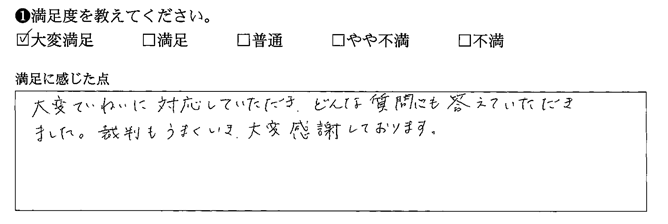 ❶満足度を教えてください。
☑大変満足 □満足 □普通 □やや不満 □不満
満足に感じた点
大変ていねいに対応していただき、どんな質問にも答えていただき
ました。裁判もうまくいき、大変感謝しております。